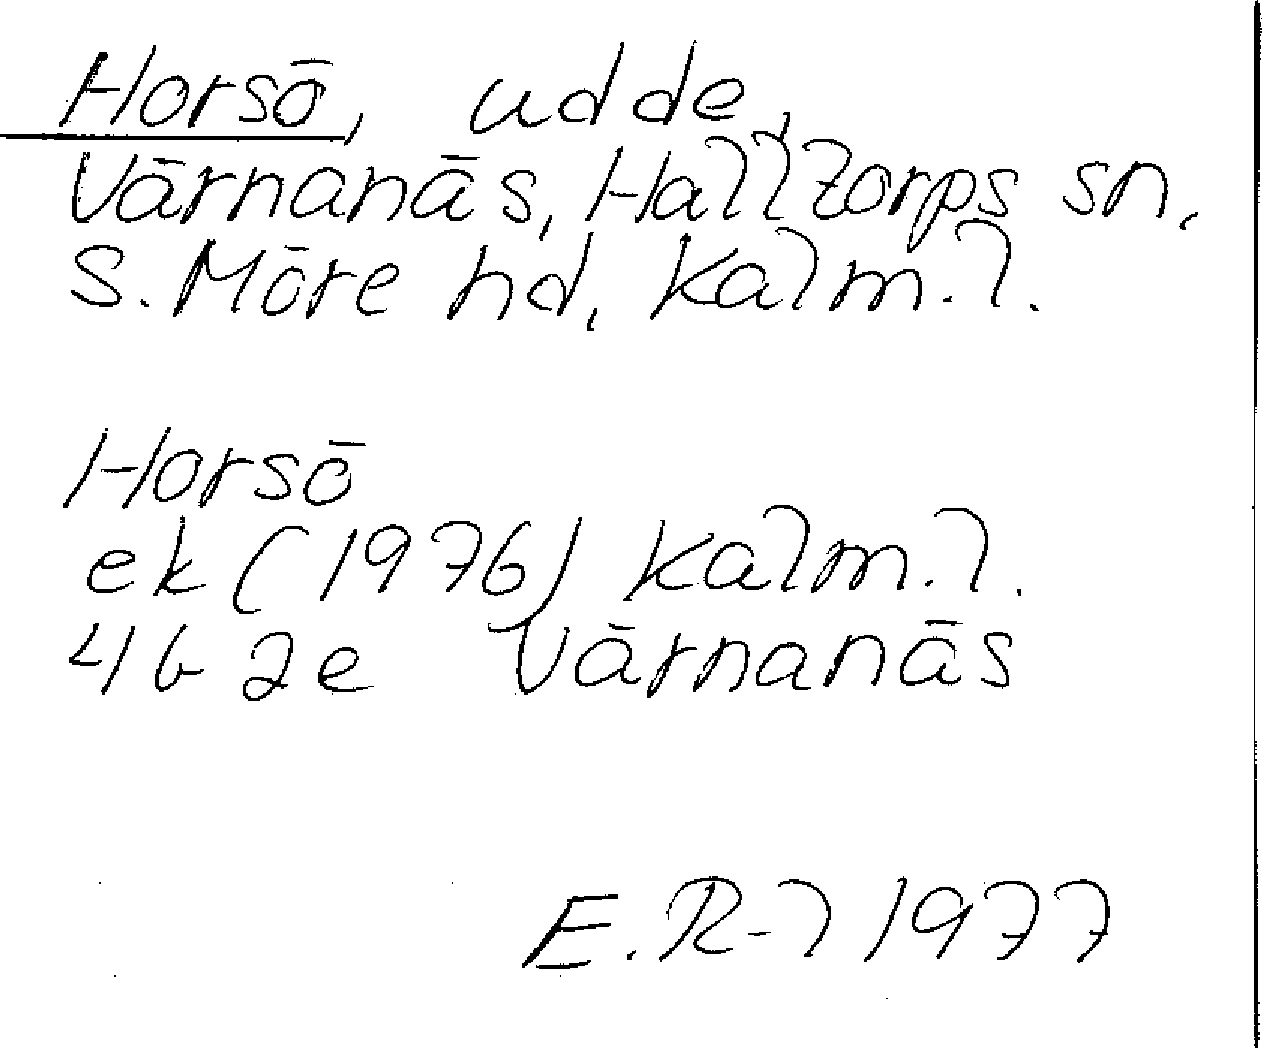 Horsö, udde,
Värnanäs, Halltorps sn,
S. Möre hd, Kalm. l.
Horsö
ek (1976) Kalm. l.
4G 2e Värnanäs
E. R-l 1977